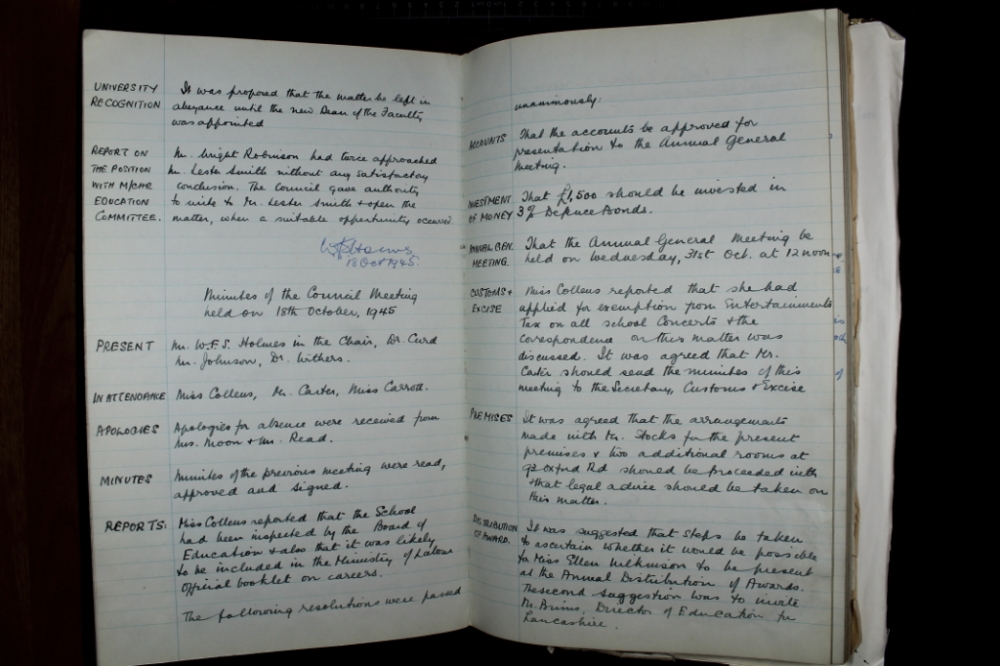 UNIVERSITY RECOGNITION
It was proposed that the matter be left in
abeyance until the new Dean of the Faculty
was appointed
REPORT ON THE POSITION WITH M/CHR EDUCATION COMMITTEE.
Mr. Wright Robinson had twice approached
Mr. Lester Smith without any satisfactory
conclusion. The Council gave authority
to write to Mr. Lester Smith + open the
matter, when a suitable opportunity occurred.
18 Oct 1945.
Minutes of the Council Meeting
held on 18th October, 1945
PRESENT
Mr. W.F.S. Holmes in the Chair, Dr. Curd
Mr. Johnson, Dr. Withers.
IN ATTENDANCE
Miss Collens, Mr. Carter, Miss Carroll.
APOLOGIES
Apologies for absence were received from
Mrs. Moon + Mr. Read.
MINUTES
Minutes of the previous meeting were read,
approved and signed.
REPORTS:
Miss Collens reported that the School
had been inspected by the Board of
Education + also that it was likely
to be included in the Ministry of Labour
Official booklet on careers.
The following resolutions were passed
unanimously:
ACCOUNTS
That the accounts be approved for
presentation to the Annual General
Meeting.
INVESTMENT OF MONEY
That £1,500 should be invested in
3% Defence Bonds.
ANNUAL GEN. MEETING
That the Annual General Meeting be
held on Wednesday, 31st Oct. at 12 noon
CUSTOMS + EXCISE
Miss Collens reported that she had
applied for exemption from Entertainments
Tax on all school Concerts + the
correspondence on this matter was
discussed. It was agreed that Mr.
Carter should send the minutes of this
meeting to the Secretary, Customs + Excise
PREMISES
It was agreed that the arrangements
made with Mr. Stocks for the present
premises + two additional rooms at
92 Oxford Rd should be proceeded with
+ that legal advice should be taken on
this matter.
DISTRIBUTION OF AWARD.
It was suggested that steps be taken
to ascertain whether it would be possible
for Miss Ellen Wilkinson to be present
at the Annual Distribution of Awards.
The second suggestion was to invite
Mr. Binns, Director of Education for
Lancashire.